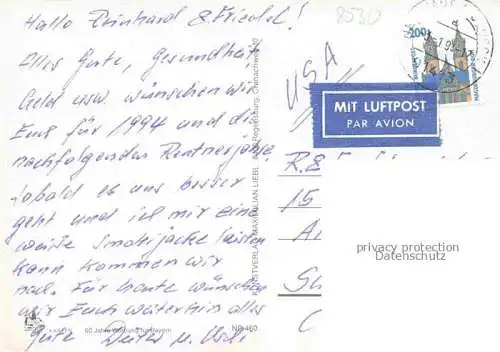 Hallo Reinhard & Friedel!
Alles Gute, Gesundheit,
Geld usw. wünschen wir
Euch für 1994 und die
nachfolgenden Rentnerjahre.
Sobald es uns besser
geht und ich mir eine
weiße Smokijacke leisten
kann kommen wir
mal. Für heute wünschen
wir Euch weiterhin alles
Gute Dieter u. Usch
85310
200
USA
MIT LUFTPOST
PAR AVION
R.E
15
A
S
C
privacy protection
Datenschutz
KUNSTVERLAG MAXIMILIAN LIEBL Regensburg,
NR 460